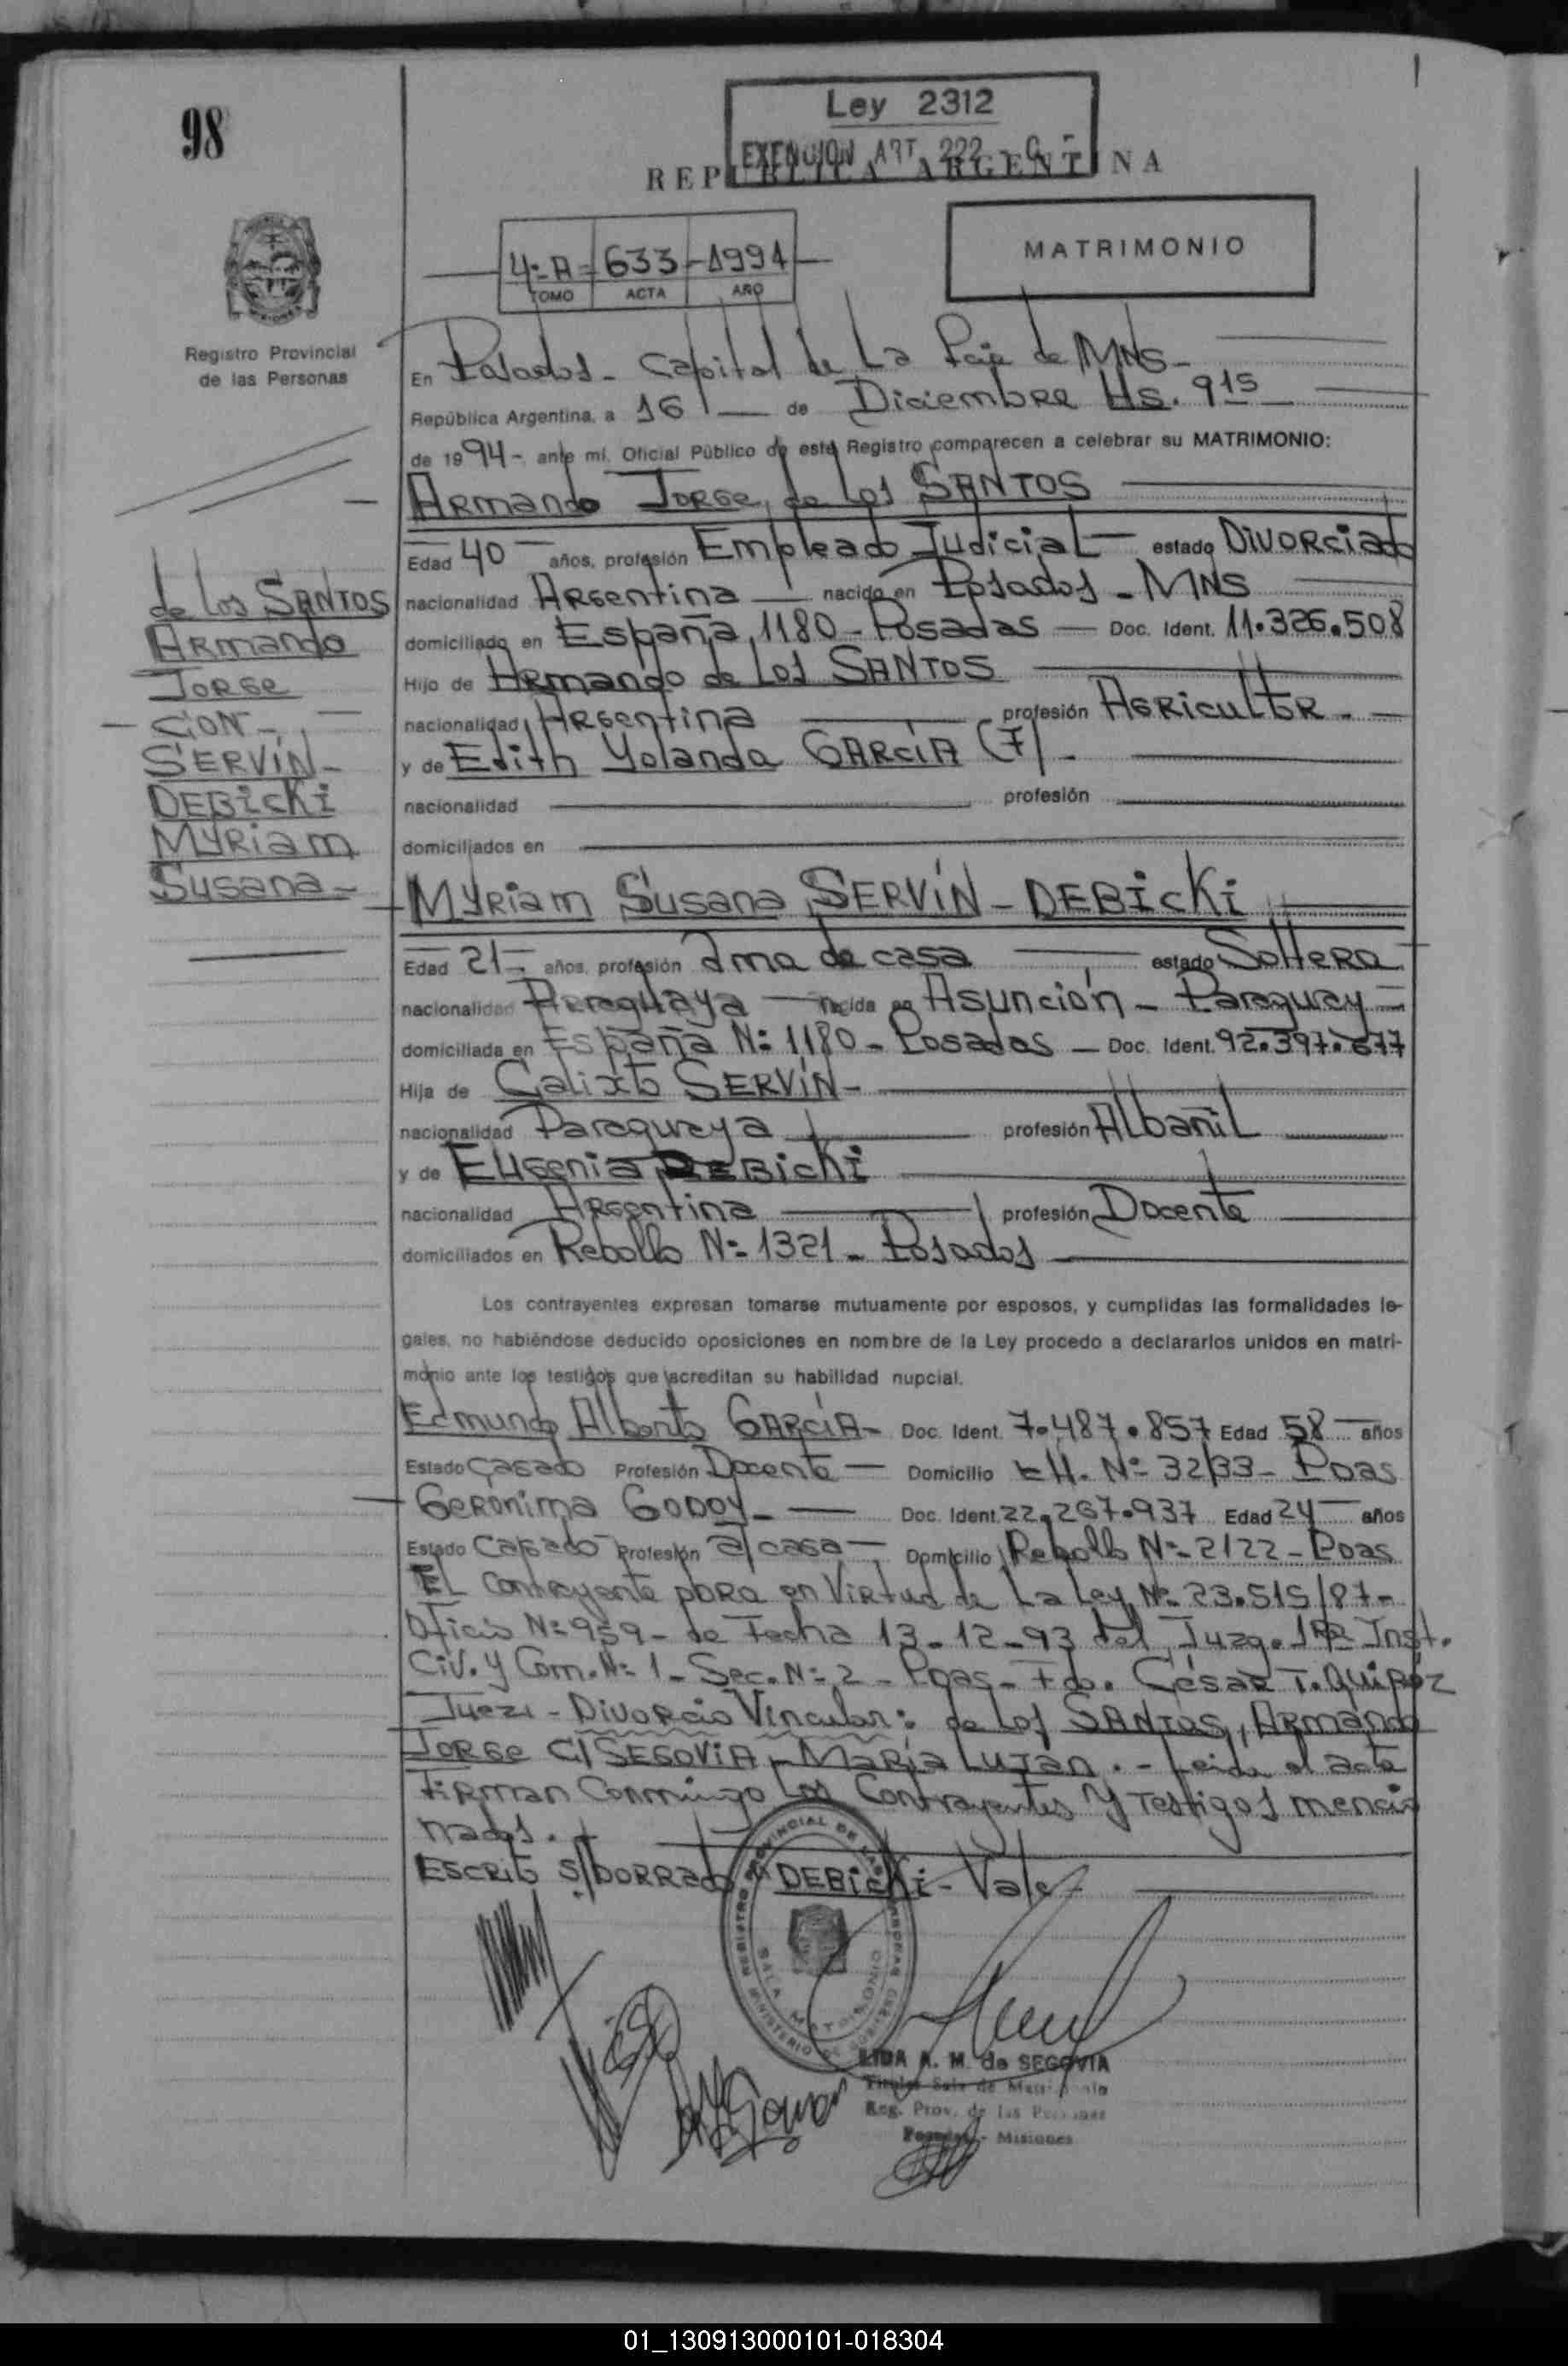 98
Ley 2312
EXENCION ART 222 - C -
REPUBLICA ARGENTINA
4:-A=633-1994
TOMO ACTA AÑO
MATRIMONIO
Registro Provincial
de las Personas
En Posadas - Capital de La Pcia de MNS-
República Argentina, a 16 de Diciembre Hs. 9 15
de 1994- ante mí, Oficial Público de este Registro comparecen a celebrar su MATRIMONIO:
Armando Jorge de Los SANTOS
Edad 40 años, profesión Empleado Judicial estado Divorciado
nacionalidad Argentina nacido en Posadas - MNS
domiciliado en España 1180 - Posadas - Doc. Ident. 11.326.508
Hijo de Armando de Los SANTOS
nacionalidad Argentina profesión Agricultor -
y de Edith Yolanda GARCÍA (F) -
nacionalidad profesión
domiciliados en
de Los SANTOS
Armando
Jorge
- CON -
SERVÍN -
DEBicKi
Myriam
Susana -
Myriam Susana SERVÍN - DEBicKi
Edad 21 - años, profesión ama de casa estado Soltera
nacionalidad Paraguaya nacida en Asunción - Paraguay -
domiciliada en España N: 1180 - Posadas - Doc. Ident. 92.397.677
Hija de Calixto SERVÍN -
nacionalidad Paraguaya profesión Albañil
y de Eugenia DEBicKi
nacionalidad Argentina profesión Docente
domiciliados en Rebollo N:- 1321 - Posadas
Los contrayentes expresan tomarse mutuamente por esposos, y cumplidas las formalidades le-
gales, no habiéndose deducido oposiciones en nombre de la Ley procedo a declararlos unidos en matri-
monio ante los testigos que acreditan su habilidad nupcial.
Edmundo Alberto GARCÍA - Doc. Ident. 7.487.857 Edad 58 años
Estado Casado Profesión Docente - Domicilio N:- 32/33 - Pdas
Gerónima GODOY - Doc. Ident. 22.267.937 Edad 24 años
Estado Casado Profesión a/casa - Domicilio Rebollo N:- 2122 - Pdas
El contrayente en Virtud de La Ley N: 23.515/87 -
Oficio N: 959 - de Fecha 13-12-93 del Juzg. 1ra Inst.
Civ. y Com. N: 1 - Sec. N: 2 - Pdas - Fdo. César T. Quiróz
Juez - Divorcio Vincular: de Los SANTOS, Armando
Jorge C/ SEGOVIA - María Lujan. - Leida el acta
Firman Conmingo Los Contrayentes y Testigos mencio
nados. -
Escrito s/borrado DEBicKi - Vale -
REGISTRO PROVINCIAL DE LAS PERSONAS
SALA MATRIMONIO
MINISTERIO DE GOBIERNO
LIDA A. M. de SEGOVIA
Titular Sala de Matrimonio
Reg. Prov. de las Personas
Posadas - Misiones
01_130913000101-018304